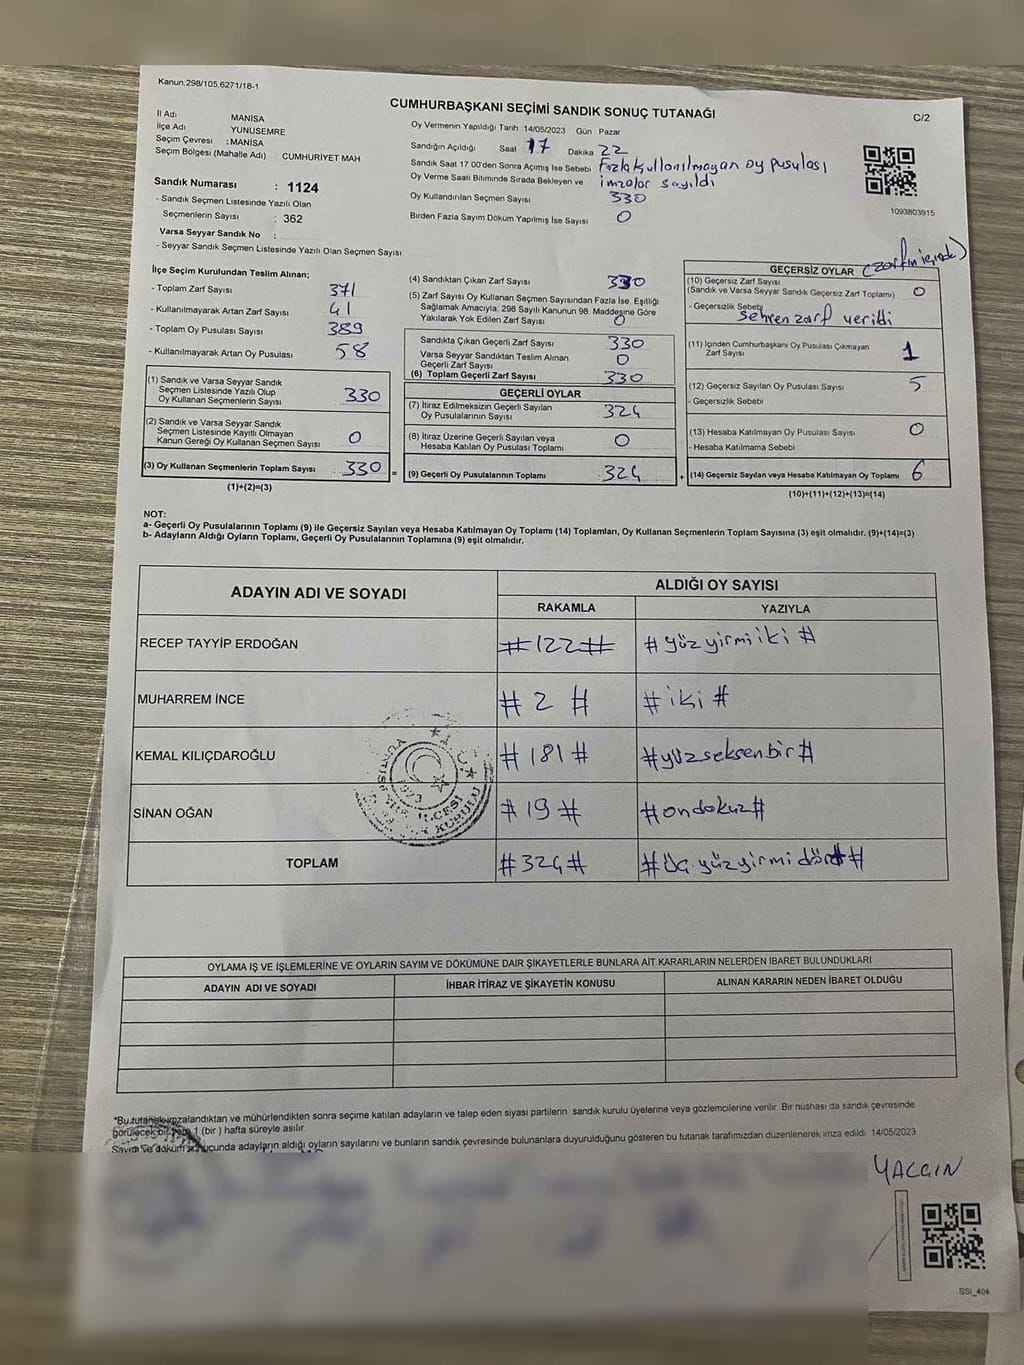 Kanun.298/105.6271/18-1
CUMHURBAŞKANI SEÇİMİ SANDIK SONUÇ TUTANAĞI
C/2
İl Adı MANİSA
İlçe Adı YUNUSEMRE
Seçim Çevresi : MANİSA
Seçim Bölgesi (Mahalle Adı) CUMHURİYET MAH
Sandık Numarası : 1124
- Sandık Seçmen Listesinde Yazılı Olan
Seçmenlerin Sayısı : 362
Varsa Seyyar Sandık No :
- Seyyar Sandık Seçmen Listesinde Yazılı Olan Seçmen Sayısı
Oy Vermenin Yapıldığı Tarih :14/05/2023 Gün : Pazar
Sandığın Açıldığı Saat 17 Dakika 22
Sandık Saat 17:00'den Sonra Açımış İse Sebebi Fazla kullanılmayan oy pusulası
Oy Verme Saati Bitiminde Sırada Bekleyen ve imzalar sayıldı
Oy Kullandırılan Seçmen Sayısı 330
Birden Fazla Sayım Döküm Yapılmış İse Sayısı 0
1093803915
İlçe Seçim Kurulundan Teslim Alınan;
- Toplam Zarf Sayısı 371
- Kullanılmayarak Artan Zarf Sayısı 41
- Toplam Oy Pusulası Sayısı 389
- Kullanılmayarak Artan Oy Pusulası 58
(1) Sandık ve Varsa Seyyar Sandık
Seçmen Listesinde Yazılı Olup
Oy Kullanan Seçmenlerin Sayısı 330
(2) Sandık ve Varsa Seyyar Sandık
Seçmen Listesinde Kayıtlı Olmayan
Kanun Gereği Oy Kullanan Seçmen Sayısı 0
(3) Oy Kullanan Seçmenlerin Toplam Sayısı 330 =
(1)+(2)=(3)
(4) Sandıktan Çıkan Zarf Sayısı 330
(5) Zarf Sayısı Oy Kullanan Seçmen Sayısından Fazla İse, Eşitliği
Sağlamak Amacıyla, 298 Sayılı Kanunun 98. Maddesine Göre
Yakılarak Yok Edilen Zarf Sayısı 0
Sandıkta Çıkan Geçerli Zarf Sayısı 330
Varsa Seyyar Sandıktan Teslim Alınan
Geçerli Zarf Sayısı 0
(6) Toplam Geçerli Zarf Sayısı 330
GEÇERLİ OYLAR
(7) İtiraz Edilmeksizin Geçerli Sayılan
Oy Pusulalarının Sayısı 324
(8) İtiraz Üzerine Geçerli Sayılan veya
Hesaba Katılan Oy Pusulası Toplamı 0
(9) Geçerli Oy Pusulalarının Toplamı 324 +
GEÇERSİZ OYLAR (zarfın içinde)
(10) Geçersiz Zarf Sayısı
(Sandık ve Varsa Seyyar Sandık Geçersiz Zarf Toplamı) 0
- Geçersizlik Sebebi
zarf verildi
(11) İçinden Cumhurbaşkanı Oy Pusulası Çıkmayan
Zarf Sayısı 1
(12) Geçersiz Sayılan Oy Pusulası Sayısı 5
- Geçersizlik Sebebi
(13) Hesaba Katılmayan Oy Pusulası Sayısı 0
- Hesaba Katılmama Sebebi
(14) Geçersiz Sayılan veya Hesaba Katılmayan Oy Toplamı 6
(10)+(11)+(12)+(13)=(14)
NOT:
a- Geçerli Oy Pusulalarının Toplamı (9) ile Geçersiz Sayılan veya Hesaba Katılmayan Oy Toplamı (14) Toplamları, Oy Kullanan Seçmenlerin Toplam Sayısına (3) eşit olmalıdır. (9)+(14)=(3)
b- Adayların Aldığı Oyların Toplamı, Geçerli Oy Pusulalarının Toplamına (9) eşit olmalıdır.
ADAYIN ADI VE SOYADI ALDIĞI OY SAYISI
RAKAMLA YAZIYLA
RECEP TAYYİP ERDOĞAN #122# #yüz yirmi iki#
MUHARREM İNCE #2# #iki#
KEMAL KILIÇDAROĞLU #181# #yüzseksenbir#
SİNAN OĞAN #19# #ondokuz#
TOPLAM #324# #üç yüz yirmi dört#
T.C.
1923
KURULU
OYLAMA İŞ VE İŞLEMLERİNE VE OYLARIN SAYIM VE DÖKÜMÜNE DAİR ŞİKAYETLERLE BUNLARA AİT KARARLARIN NELERDEN İBARET BULUNDUKLARI
ADAYIN ADI VE SOYADI İHBAR İTİRAZ VE ŞİKAYETİN KONUSU ALINAN KARARIN NEDEN İBARET OLDUĞU
*Bu tutanak imzalandıktan ve mühürlendikten sonra seçime katılan adayların ve talep eden siyasi partilerin sandık kurulu üyelerine veya gözlemcilerine verilir. Bir nüshası da sandık çevresinde
görülecek bir yere 1 (bir ) hafta süreyle asılır.
Sayım ve döküm sonucunda adayların aldığı oyların sayılarını ve bunların sandık çevresinde bulunanlara duyurulduğunu gösteren bu tutanak tarafımızdan düzenlenerek imza edildi. 14/05/2023
YALÇIN
SSI_404